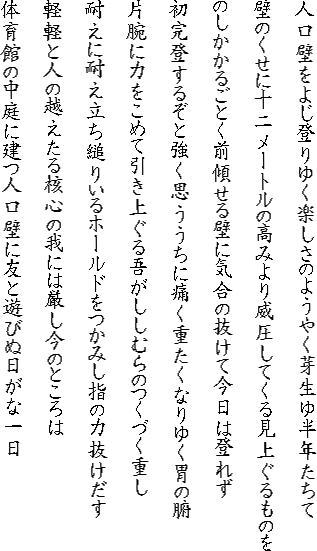 人口壁をよじ登りゆく楽しさのようやく芽生ゆ半年たちて
壁のくせに十二メートルの高みより威圧してくる見上ぐるものを
のしかかるごとく前傾せる壁に気合の抜けて今日は登れず
初完登するぞと強く思ううちに痛く重たくなりゆく胃の腑
片腕に力をこめて引き上ぐる吾がししむらのつくづく重し
耐えに耐え立ち縋りいるホールドをつかみし指の力抜けだす
軽軽と人の越えたる核心の我には厳し今のところは
体育館の中庭に建つ人口壁に友と遊びぬ日がな一日